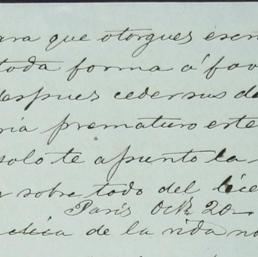 para que otorgues escri
toda forma á fav
despues ceder sus de
ria prematuro este
solo te apunto la
sobre todo del lice
Paris Oct 20
clica de la vida no